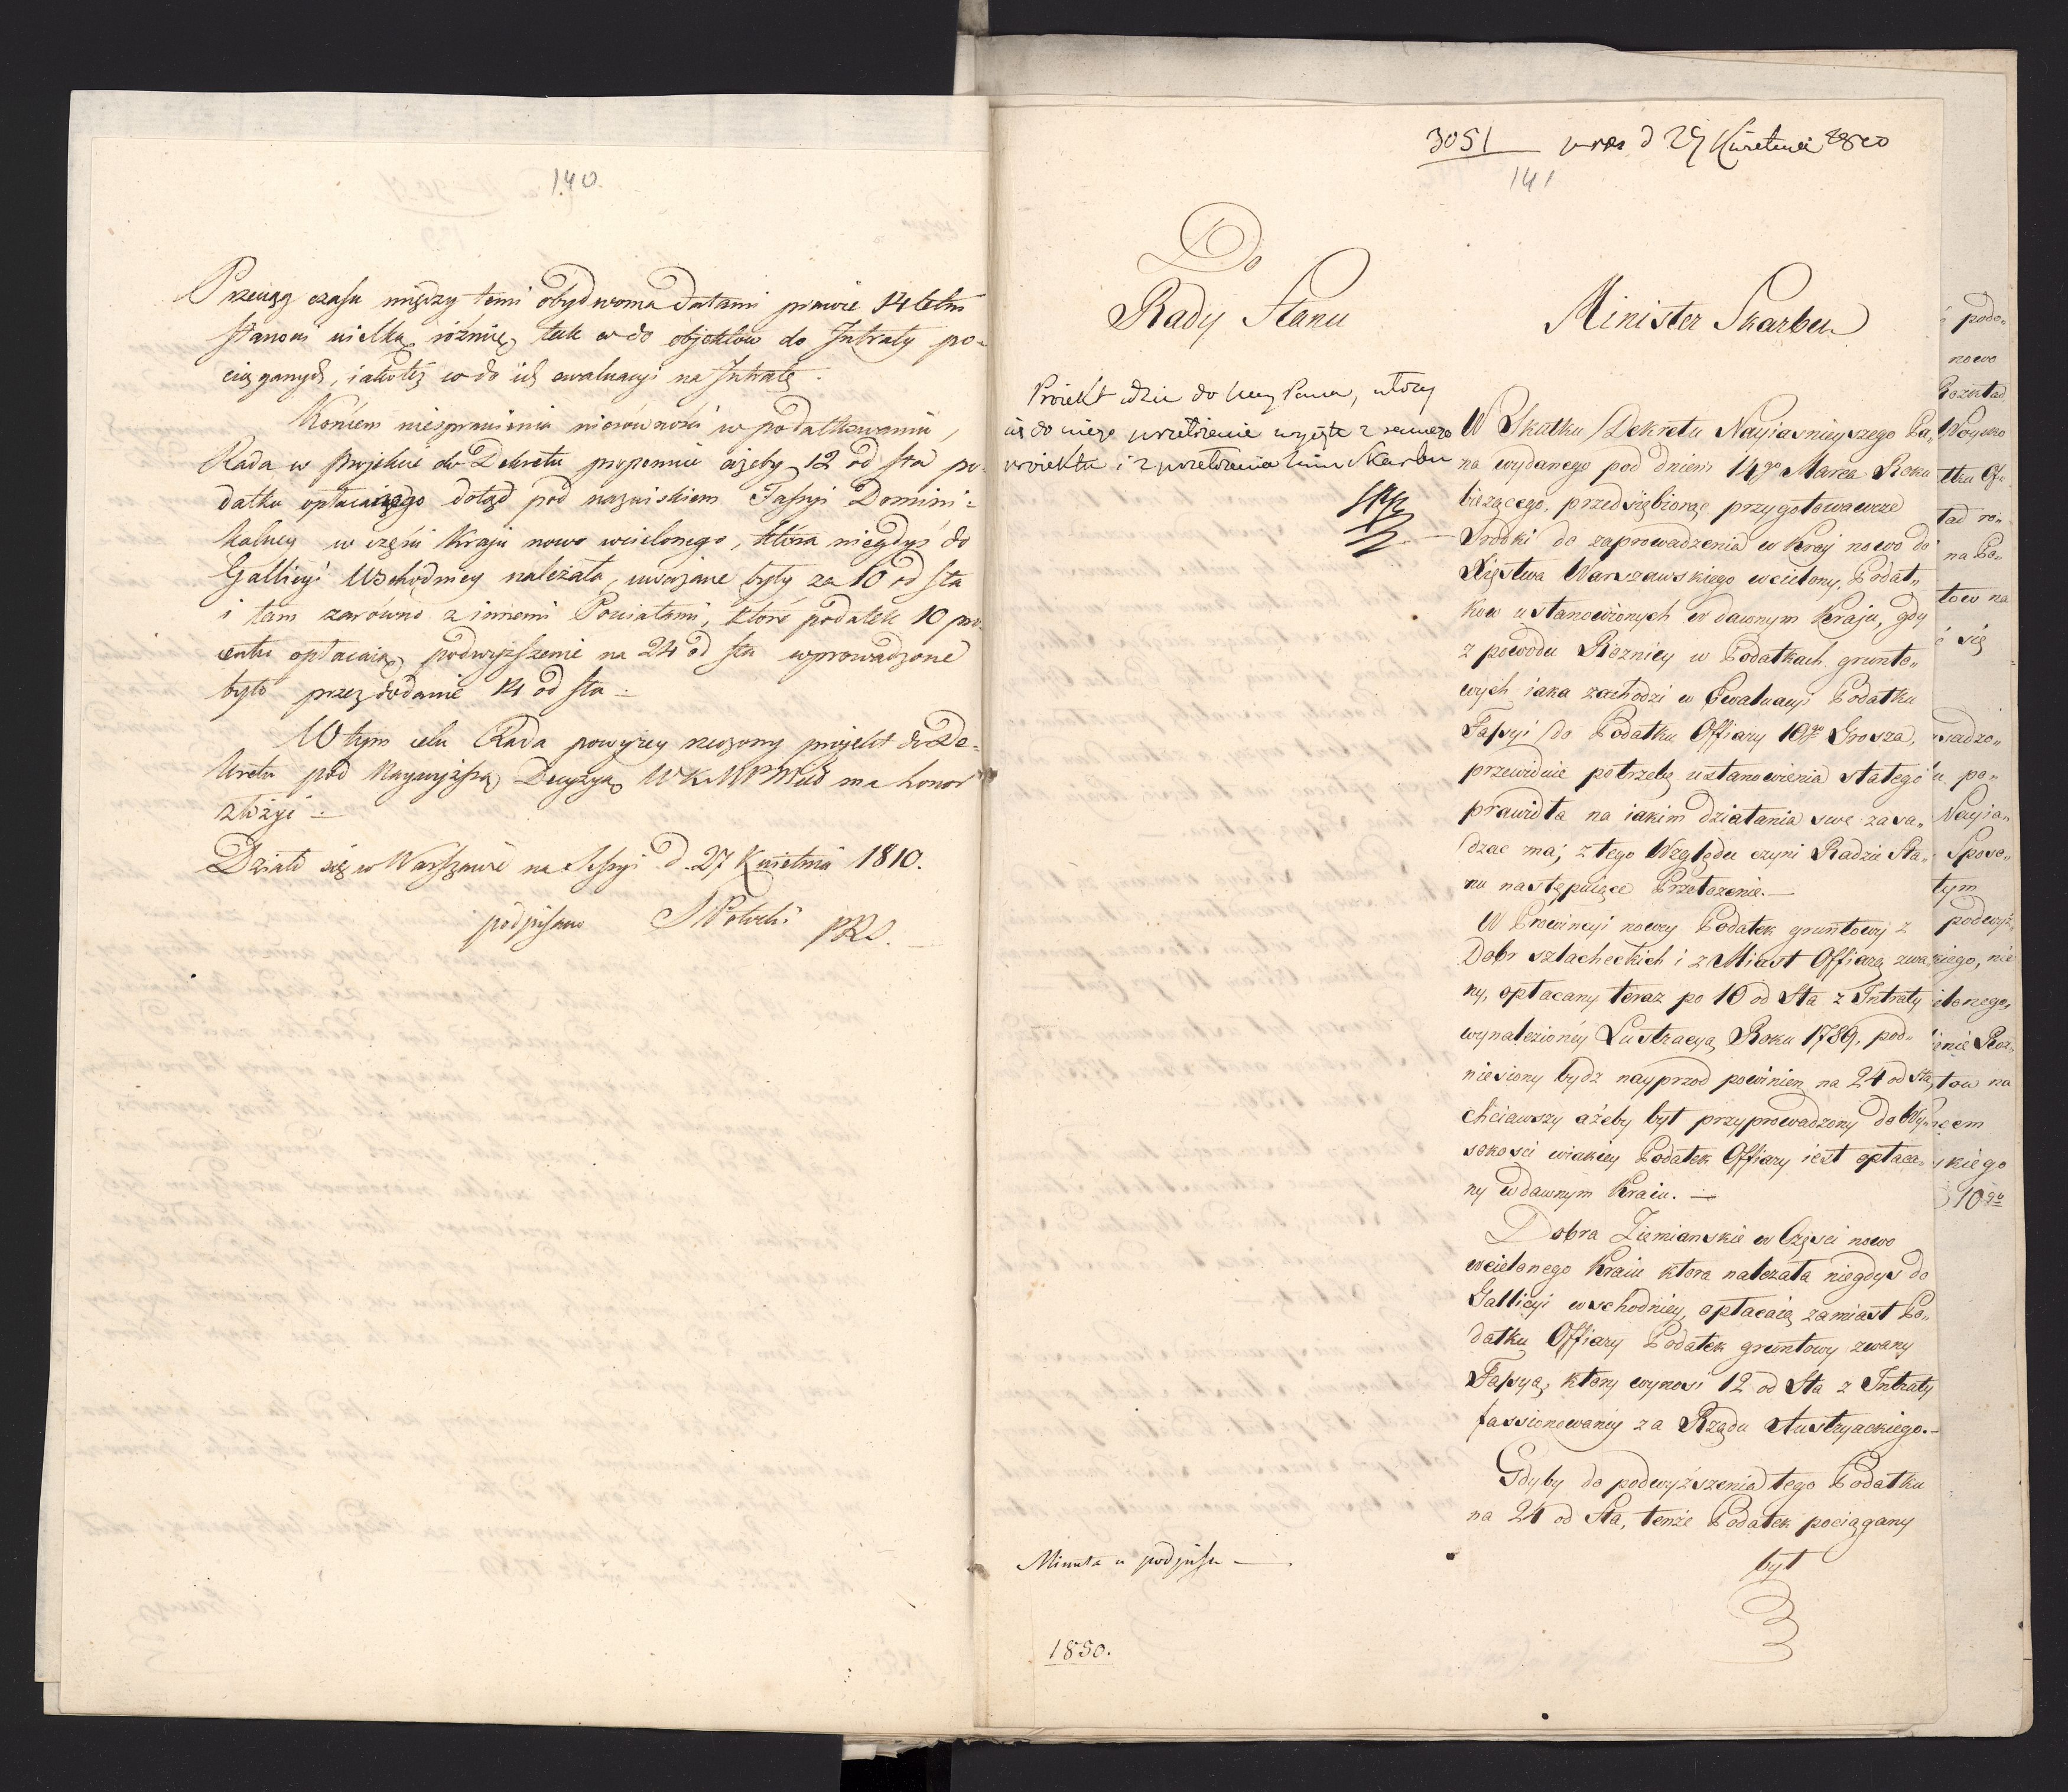 140.
Przeciąg czasu między temi obydwoma datami prawie 14 letni
stanowi wielką różnicę, tak co do objektów do Intraty po-
ciąganych, iakoteż co do ich ewaluacyi na Intratę.
Końcem niesprawienia nierówności w podatkowaniu,
Rada w Projekcie do Dekretu proponuie ażeby 12 od sta po-
datku opłacaiącego dotąd pod nazwiskiem Fassyi Domini-
kalney w części Kraju nowo wcielonego, która niegdyś do
Gallicyi Wschodniey należała, uważane były za 10 od sta
i tam zarówno z innemi Powiatami, które podatek 10 pro
centu opłacaią, podwyższenie na 24 od sta wprowadzone
było przez dodanie 14 od sta.
W tym celu Rada powyżey rzeczony projekt do De-
kretu pod Naywyższą Decyzyą WKMPMiłł ma honor
złożyć.
Działo się w Warszawie na Sessyi d. 27 Kwietnia 1810.
podpisano S Potocki PRS.
3051 d 29 Kwietnia 1810
141
Do
Rady Stanu
Minister Skarbu
Proiekt idzie do Nay Pana, który
iak do niego przełożenie wzięte z samego
proiektu i z przełożenia Min Skarbu
W Skutku Dekretu Nayiasnieyszego Pa„
na wydanego pod dniem 14go Marca Roku
bieżącego, przedsiębiorąc przygotowawcze
Srodki do zaprowadzenia w Kray nowo do
Xięstwa Warszawskiego wcielony, Podat„
kow ustanowionych w dawnym Kraju, gdy
z powodu Roznicy w Podatkach grunto„
wych iaka zachodzi w Ewaluacyi Podatku
Fassyi do Podatku Offiary 10go Grosza,
przewiduie potrzebę ustanowienia stałego
prawidła na iakim działania swe zasa„
dzać ma, z tego Względu czyni Radzie Sta„
nu następuiące Przełożenie.—
W Prowincyi nowey Podatek gruntowy z
Dobr szlacheckich i z Miast Offiarą zwa
ny, opłacany teraz po 10 od Sta z Intraty
wynalezioney Lustracyą Roku 1789, pod„
niesiony bydz nayprzod powinien na 24 od Sta,
chciawszy ażeby był przyprowadzony do Wy„
sokosci w iakiey Podatek Offiary iest opłaca„
ny w dawnym Kraiu. —
Dobra Ziemianskie w Częsci nowo
wcielonego Kraiu ktora nalezała niegdys do
Gallicyi wschodniey, opłacaią zamiast Po„
datku Offiary Podatek gruntowy zwany
Fassyą, ktory wynosi 12 od Sta z Intraty
fassionowaney za Rządu Austryackiego.—
Gdyby do podwyższenia tego Podatku
na 24 od Sta, tenże Podatek pociągany
był
Minuta u podpisu —
1850.
podo„
nowo
Rozkład
Woysko
tku Ofi
tad ro„
na Po„
tow na
się
sadzo„
u po„
Nayia„
Sposo„
tym
podwyż„
kiego, nie
ilonego
enie Roz„
tow na
cem
skiego
10go